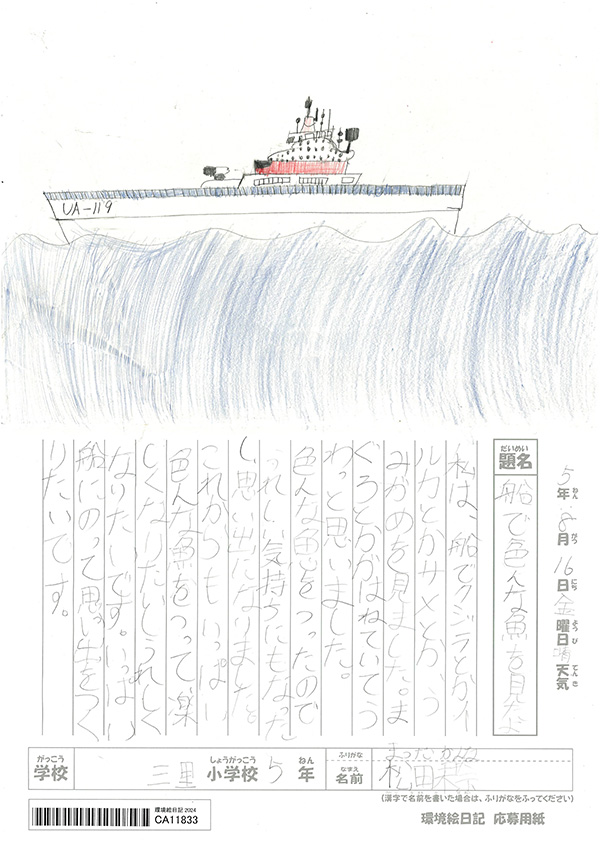 UA-119
5年 8月 16日 金曜日 晴 天気
ねん がつ にち ようび てんき
だいめい
題名
船で色んな魚を見たよ
私は、船でクジラとかイ
ルカとかサメとか、う
みがめを見ました。ま
ぐろとかがはねていてう
わっと思いました。
色んな魚をつったので
うれしい気持ちにもなった
し、思い出になりました。
これからもいっぱい
色んな魚をつって楽
しくなりたいしうれしく
なりたいです。いっぱい
船にのって思い出をつく
りたいです。
がっこう
学校
三里
しょうがっこう
小学校
5
ねん
年
ふりがな
まつだ かんな
なまえ
名前
松田
(漢字で名前を書いた場合は、ふりがなをふってください)
環境絵日記 2024
CA11833
環境絵日記 応募用紙